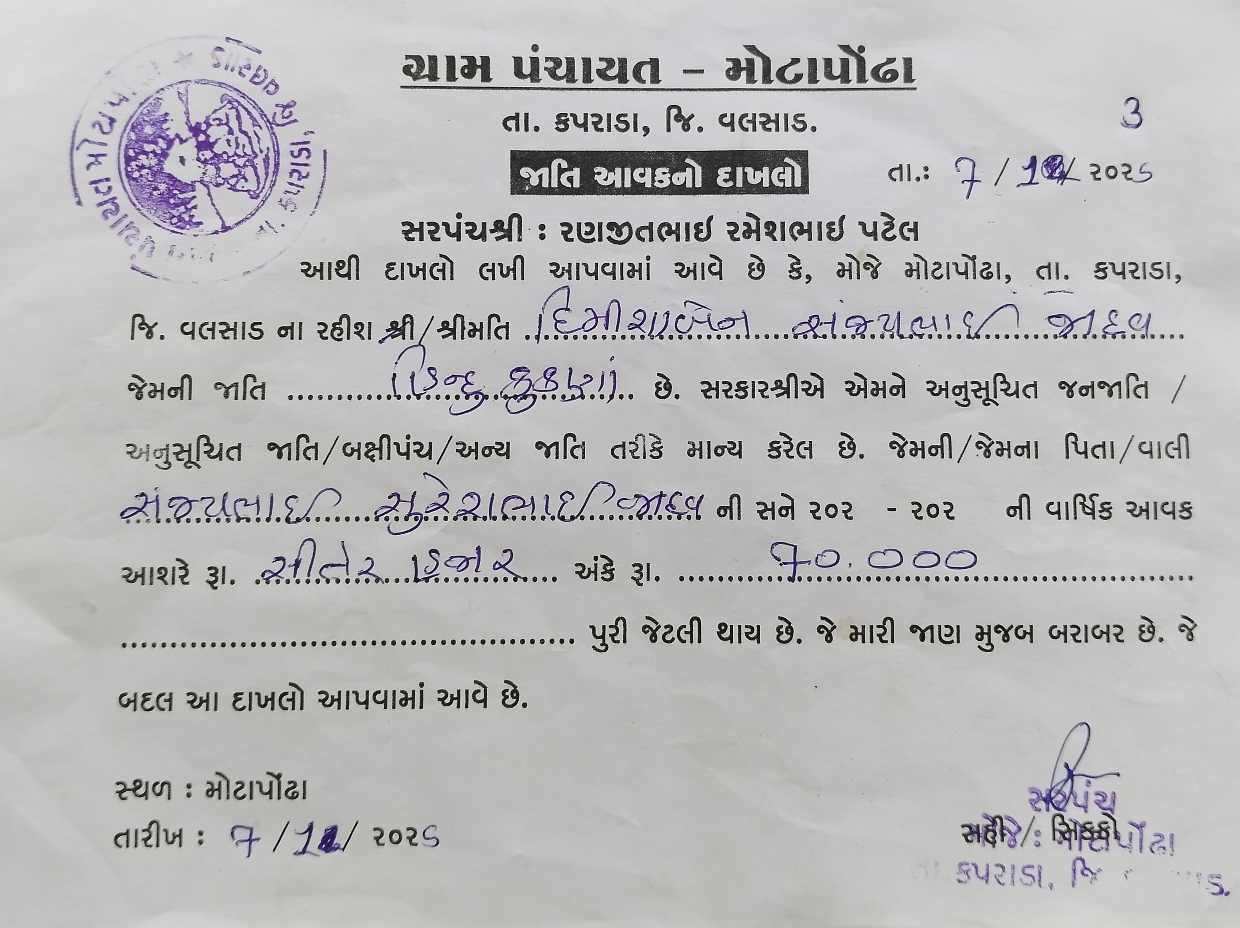 ગ્રામ પંચાયત – મોટાપોંઢા
તા. કપરાડા, જિ. વલસાડ.
3
જાતિ આવકનો દાખલો
તા.: 7 / 12/ ૨૦૨૬
સરપંચશ્રી : રણજીતભાઈ રમેશભાઈ પટેલ
આથી દાખલો લખી આપવામાં આવે છે કે, મોજે મોટાપોંઢા, તા. કપરાડા,
જિ. વલસાડ ના રહીશ શ્રી/શ્રીમતિ દિમીશાબેન સંજયભાઈ જાદવ
જેમની જાતિ હિન્દુ કુકણાં છે. સરકારશ્રીએ એમને અનુસૂચિત જનજાતિ /
અનુસૂચિત જાતિ/બક્ષીપંચ/અન્ય જાતિ તરીકે માન્ય કરેલ છે. જેમની/જેમના પિતા/વાલી
સંજયભાઈ સુરેશભાઈ જાદવ ની સને ૨૦૨ - ૨૦૨ ની વાર્ષિક આવક
આશરે રૂા. સીતેર હજાર અંકે રૂા. 70.000
પુરી જેટલી થાય છે. જે મારી જાણ મુજબ બરાબર છે. જે
બદલ આ દાખલો આપવામાં આવે છે.
સ્થળ : મોટાપોંઢા
તારીખ : 7 /12/ ૨૦૨૬
સરપંચ
સહી / સિક્કો
મોજે : મોટાપોંઢા
તા. કપરાડા, જિ